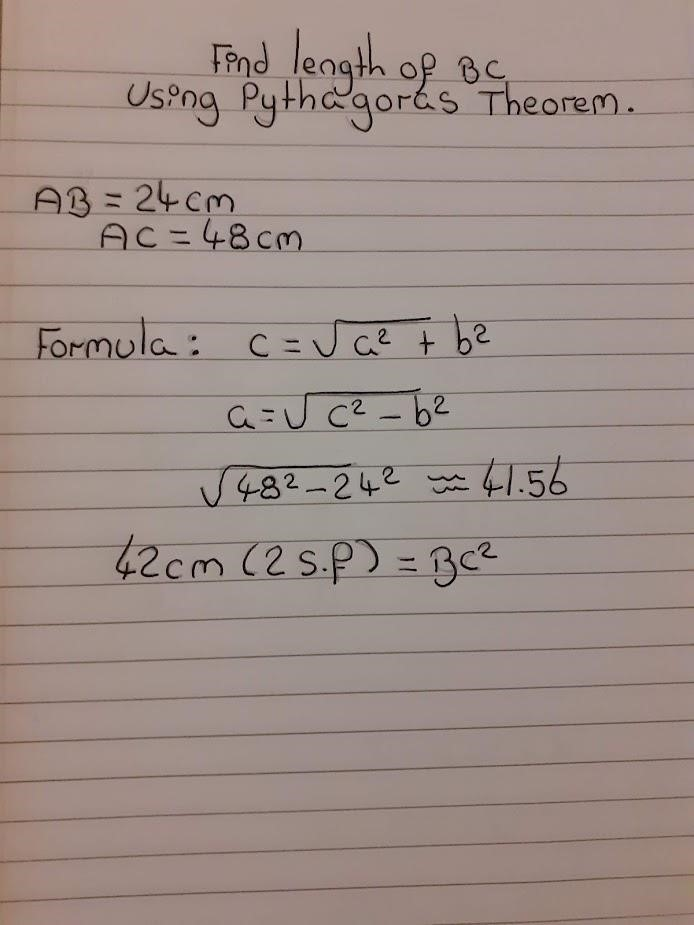 Find length of BC
Using Pythagoras Theorem.
AB = 24cm
AC = 48cm
Formula: c = √a² + b²
a = √c² - b²
√48² - 24² ≈ 41.56
42cm (2 s.f) = BC²